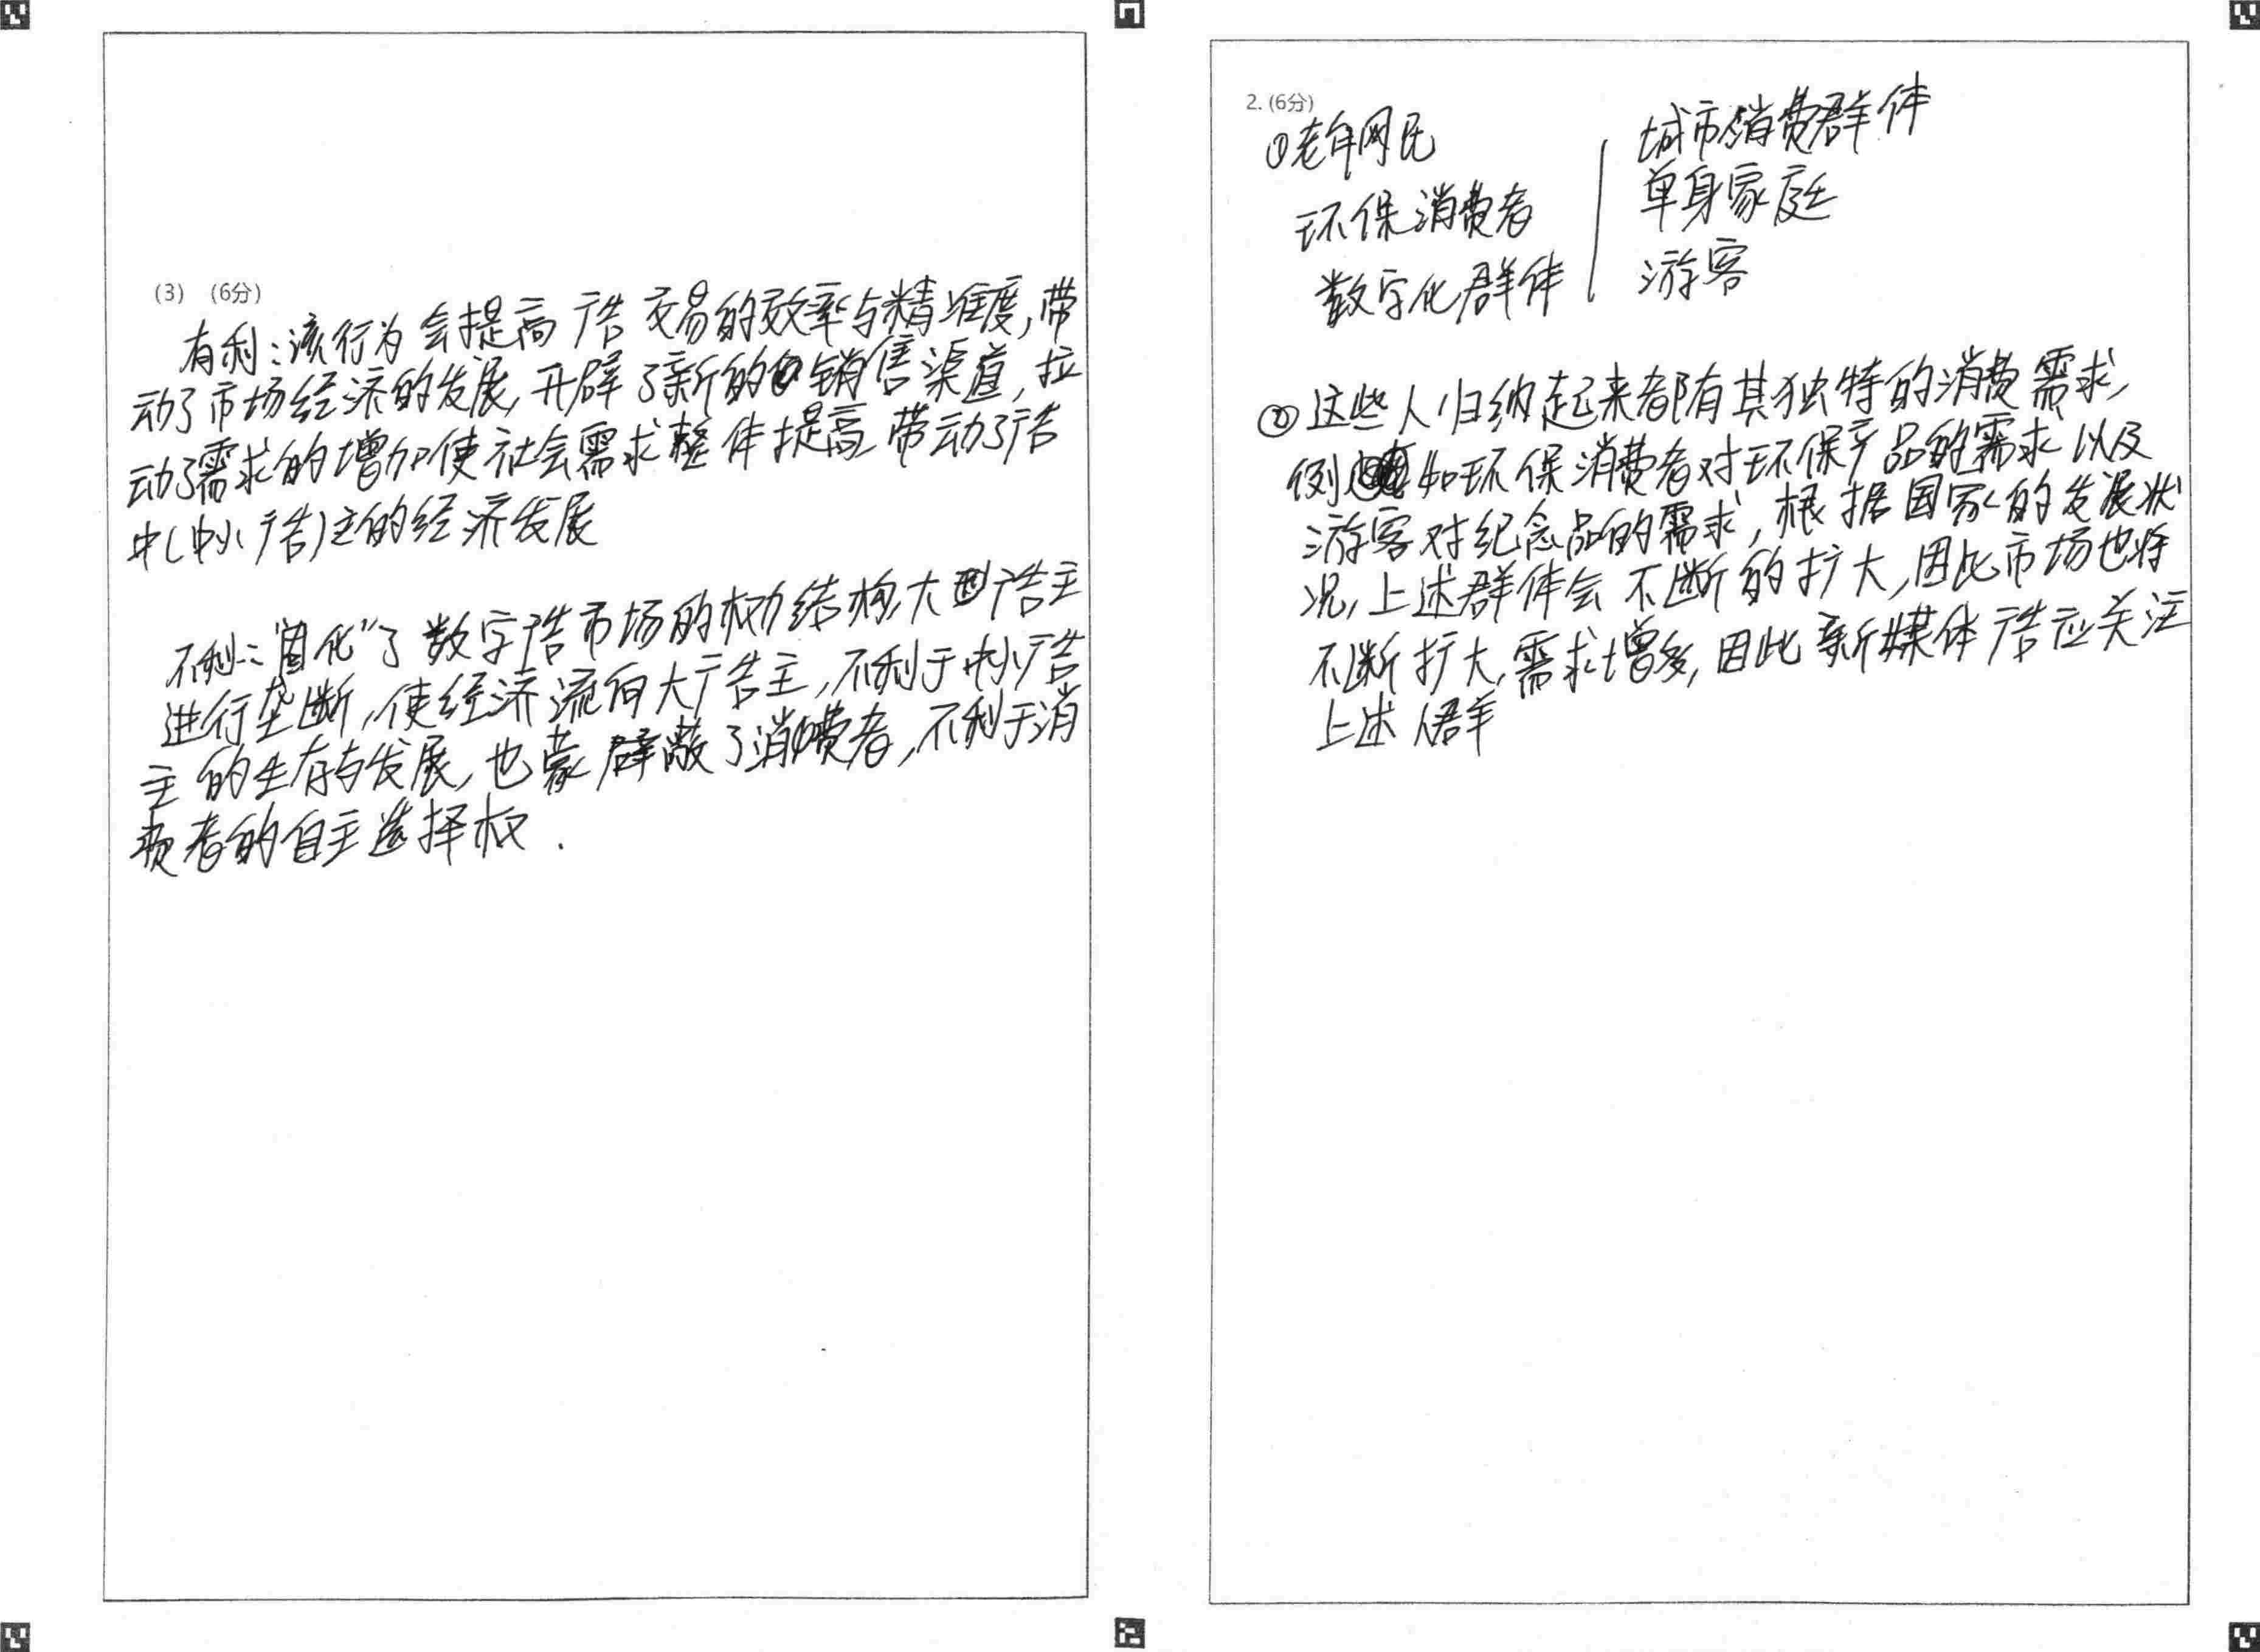 (3) (6分)
有利：该行为会提高广告交易的效率与精准度，带
动了市场经济的发展，开辟了新的销售渠道，拉
动了需求的增加使社会需求整体提高带动了广告
中(中小广告)主的经济发展
不利：“固化”了数字广告市场的权力结构，大型广告主
进行垄断，使经济流向大广告主，不利于中小广告
主的生存与发展，也蒙蔽了消费者，不利于消
费者的自主选择权．
2. (6分)
①老年网民
环保消费者
数字化群体
城市消费群体
单身家庭
游客
②这些人归纳起来都有其独特的消费需求，
例如环保消费者对环保产品的需求以及
游客对纪念品的需求，根据国家的发展状
况，上述群体会不断的扩大，因此市场也将
不断扩大，需求增多，因此新媒体广告应关注
上述人群